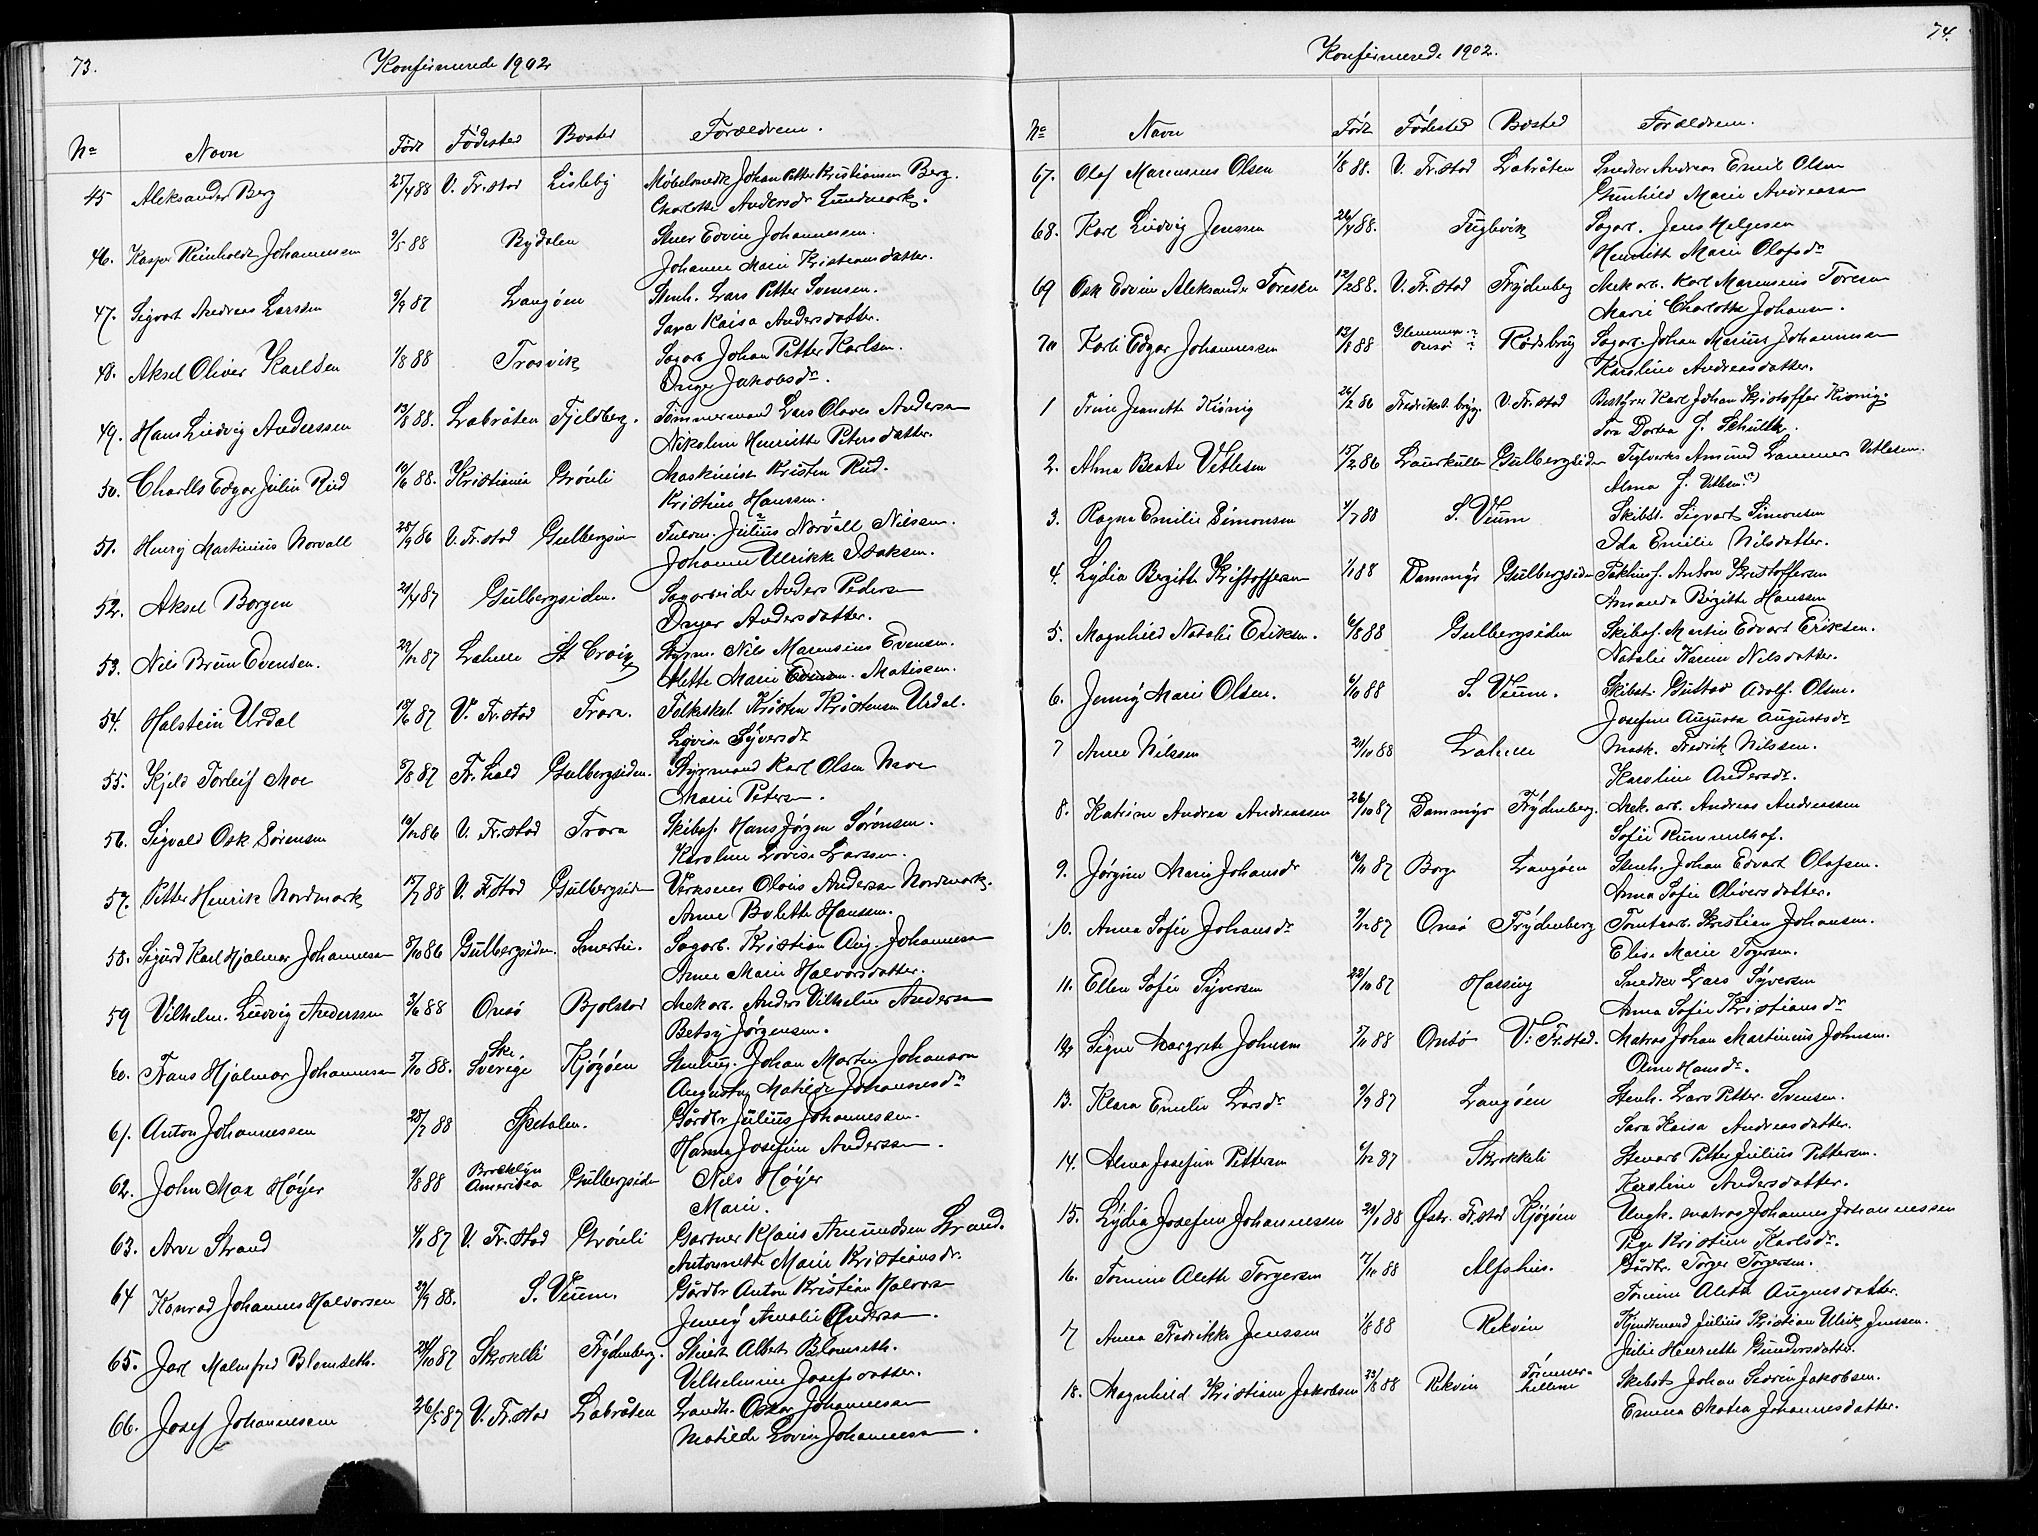 73.
Konfirmerede 1902
No Navn Født Fødested Bosted Forældrene.
45 Aleksander Berg 25/4 88 V. Fr.stad Lisleby Møbelsnedk Johan Petter Kristiansen Berg.
Charlotte Andersdr Lundmark.
46. Kasper Reinholdt Johannessen 9/5 88 Rydalen Stuer Edvin Johannessen.
Johanne Marie Kristiansdatter.
47. Sigvart Andreas Larssen 9/9 87 Langøen Stenh. Lars Petter Svensen.
Sara Kaisa Andersdatter.
48. Aksel Oliver Karlsen 1/8 88 Trosvik Sagarb Johan Petter Karlsen.
Inger Jakobsdr.
49. Hans Ludvig Anderssen 13/8 88. Labråten Fjeldberg. Tømmermand Lars Olaves Andersen
Nikoline Henriette Petersdatter.
50. Charlls Edgar Julin Rud 10/6 88. Kristiania Grönli Maskinist Kristen Rud.
Kristine Hanssen.
51. Henry Martinius Norvall 28/9 86 V. Fr.stad Gulbergsiden Julius Norvall Nilssen.
Johanne Ulrikke Isaksen.
52. Aksel Borgen 21/4 87 Gulbergsiden. Sagarbeider Anders Pedersen
Inger Andersdatter.
53. Nils Brun Evensen. 29/12 87 Lahelle St Croix Styrm. Nils Marensius Evensen.
Alette Marie Matisen.
54. Halstein Urdal 18/6 87 V. Fr.stad Trara. Folkeskol. Kristen Kristensen Urdal.
Lovise Syversdr
55. Kjeld Torleif Moe 5/8 87 Fr.hald Gulbergsiden. Styrmand Karl Olsen Moe
Marie Petersen.
56. Sigvald Osk. Sørensen 19/12 86 V. Fr.stad Trara Skibsf. Hans Jørgen Sørensen.
Karoline Lovise Larssen.
57. Petter Henrik Nordmark 17/7 88 V. Fr.stad Gulbergsiden Verkseier Olavis Andersen Nordmark.
Anne Bolette Hanssen.
58. Sigurd Karl Hjalmar Johannessen 8/10 86 Gulbergsiden. Smertu. Sagarb. Kristian Aug. Johannessen
Anne Marie Halvorsdatter.
59 Vilhelm Ludvig Anderssen 3/6 88 Onsö Bjolstad Mek arb. Anders Vilhelm Andersen
Betsy Jørgensen.
60. Frans Hjalmar Johannessen 5/10 88. Ske Sverige Kjøgøen Stenhug. Johan Martin Johanson
Augusta Matilde Johannesdr
61. Anton Johannessen 28/7 88 Spetalen. Gårdbr Julius Johannessen.
Hanna Josefine Anderssen.
62. John Max Høyer 9/8 88 Brooklyn Amerika Gulbergsiden Nils Høyer
Marie.
63. Arve Strand 4/10 87 V. Fr.stad Grönli Gartner Klaus Amundsen Strand.
Antonnette Marie Kristiansdr.
64 Konrad Johannes Halvorsen 29/9 88. S. Veum. Gårdbr Anton Kristian Halvorsen
Jenny Amalie Andersen.
65. Jarl Malmfred Blomseth. 24/10 87 Skrokkeli Frydenberg. Stuert Albert Blomseth.
Vilhelmine Josefsdatter.
66. Josef Johannessen 26/5 87 V. Fr.stad Labråten Landh. Oskar Johannessen
Matilde Lovise Johannessen.
74.
Konfirmerede 1902.
No Navn Født Fødested Bosted Forældrene.
67. Olaf Marensius Olsen 1/8 88. V. Fr.stad Labråten Smed Andreas Emil Olsen
Gunhild Marie Andreassen
68. Karl Ludvig Jenssen 26/4 88. Fuglevik Sagarb. Jens Helgesen
Henriette Marie Olafsdr
69 Osk Edvin Aleksander Toresen 12/2 88. V. Fr.stad Frydenberg Mek arb. Karl Marensius Toresen
Marie Charlotte Johansen.
70 Karl Edgar Johannessen 12/8 88 Glemminge ? Onsø ? Rødsbrug Sagarb. Johan Marius Johannessen
Karoline Andreasdatter.
1 Trine Jeanette Kiönig 26/2 86 Fredrikst. bryg. V. Fr.stad Bestyrer Karl Johan Kristoffer Kiönig.
Tora Dortea J. Schultz.
2. Alma Beate Vetlesen 15/2 86 Laurkullen Gulbergsiden Teglverks Amund Lammers Vetlesen.
Alma J. Vetlesen (?)
3. Ragna Emilie Simonsen 4/7 88 S. Veum Skibst. Sigvart Simonsen
Ida Emilie Nilsdatter.
4. Lydia Bergitte Kristoffersen 1/1 88 Dammyr Gulbergsiden Anton Kristoffersen
Amanda Birgitte Hanssen
5. Magnhild Natalie Eriksen. 6/8 88 Gulbergsiden Skibsf. Martin Edvart Eriksen.
Natalie Karine Nilsdatter.
6. Jenny Marie Olsen. 6/10 88 S. Veum. Skibst. Gustav Adolf Olsen.
Josefine Augusta Augustsdr
7 Anne Nilssen 21/10 88 Lahelle Mask. Fredrik Nilssen.
Karoline Andersdr.
8. Katrine Andrea Andreassen 26/10 87 Dammyr Frydenberg. Mek. arb. Andreas Andreassen
Sofie Rummelhof.
9. Jørgine Marie Johansdr 16/11 87 Borge Langøen Stenh. Johan Edvart Olafsen.
Anna Sofie Oliversdatter.
10. Anna Sofie Johansdr 9/12 87 Onsø Frydenberg Tomtearb. Kristian Johansen.
Elise Marie Torgersen.
11. Ellen Sofie Syversen 22/10 87 Hassing Snedker Lars Syversen
Anna Sofie Kristiansdr
12 Signe Margrete Johnsen 7/11 88 Onsö V. Fr.stad. Matros Johan Martinius Johnsen.
Oline Hansdr.
13. Klara Emilie Larsdr 9/9 87 Langøen Stenh. Lars Petter Svensen.
Sara Kaisa Andreasdatter.
14. Alma Josefine Pettersen 6/12 87 Skrokkeli Stenarb Petter Julius Pettersen.
Karoline Andersdatter.
15. Lydia Josefine Johannessen 21/1 88 Østr. Fr.stad Kjøgøen Ungk. matros Johannes Johannessen
Pige Kristine Karlsdr.
16. Tomine Alette Torgersen 7/10 88 Alfshus. Gårdbr. Torger Torgersen.
Tomine Aleta Augunsdatter.
17 Anna Fredrikke Jenssen 1/8 88 Rekvin Kjendtmand Julius Kristian Ulrik Jenssen.
Julie Henriette Gundersdatter.
18. Magnhild Kristiane Jakobsen 25/8 88 Rekvin Tømmerhellene Skibst Johan Severin Jakobsen.
Emma Matea Johannesdatter.